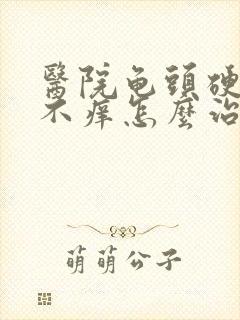 醫院龟頭硬
不痒怎麼治
萌萌公子